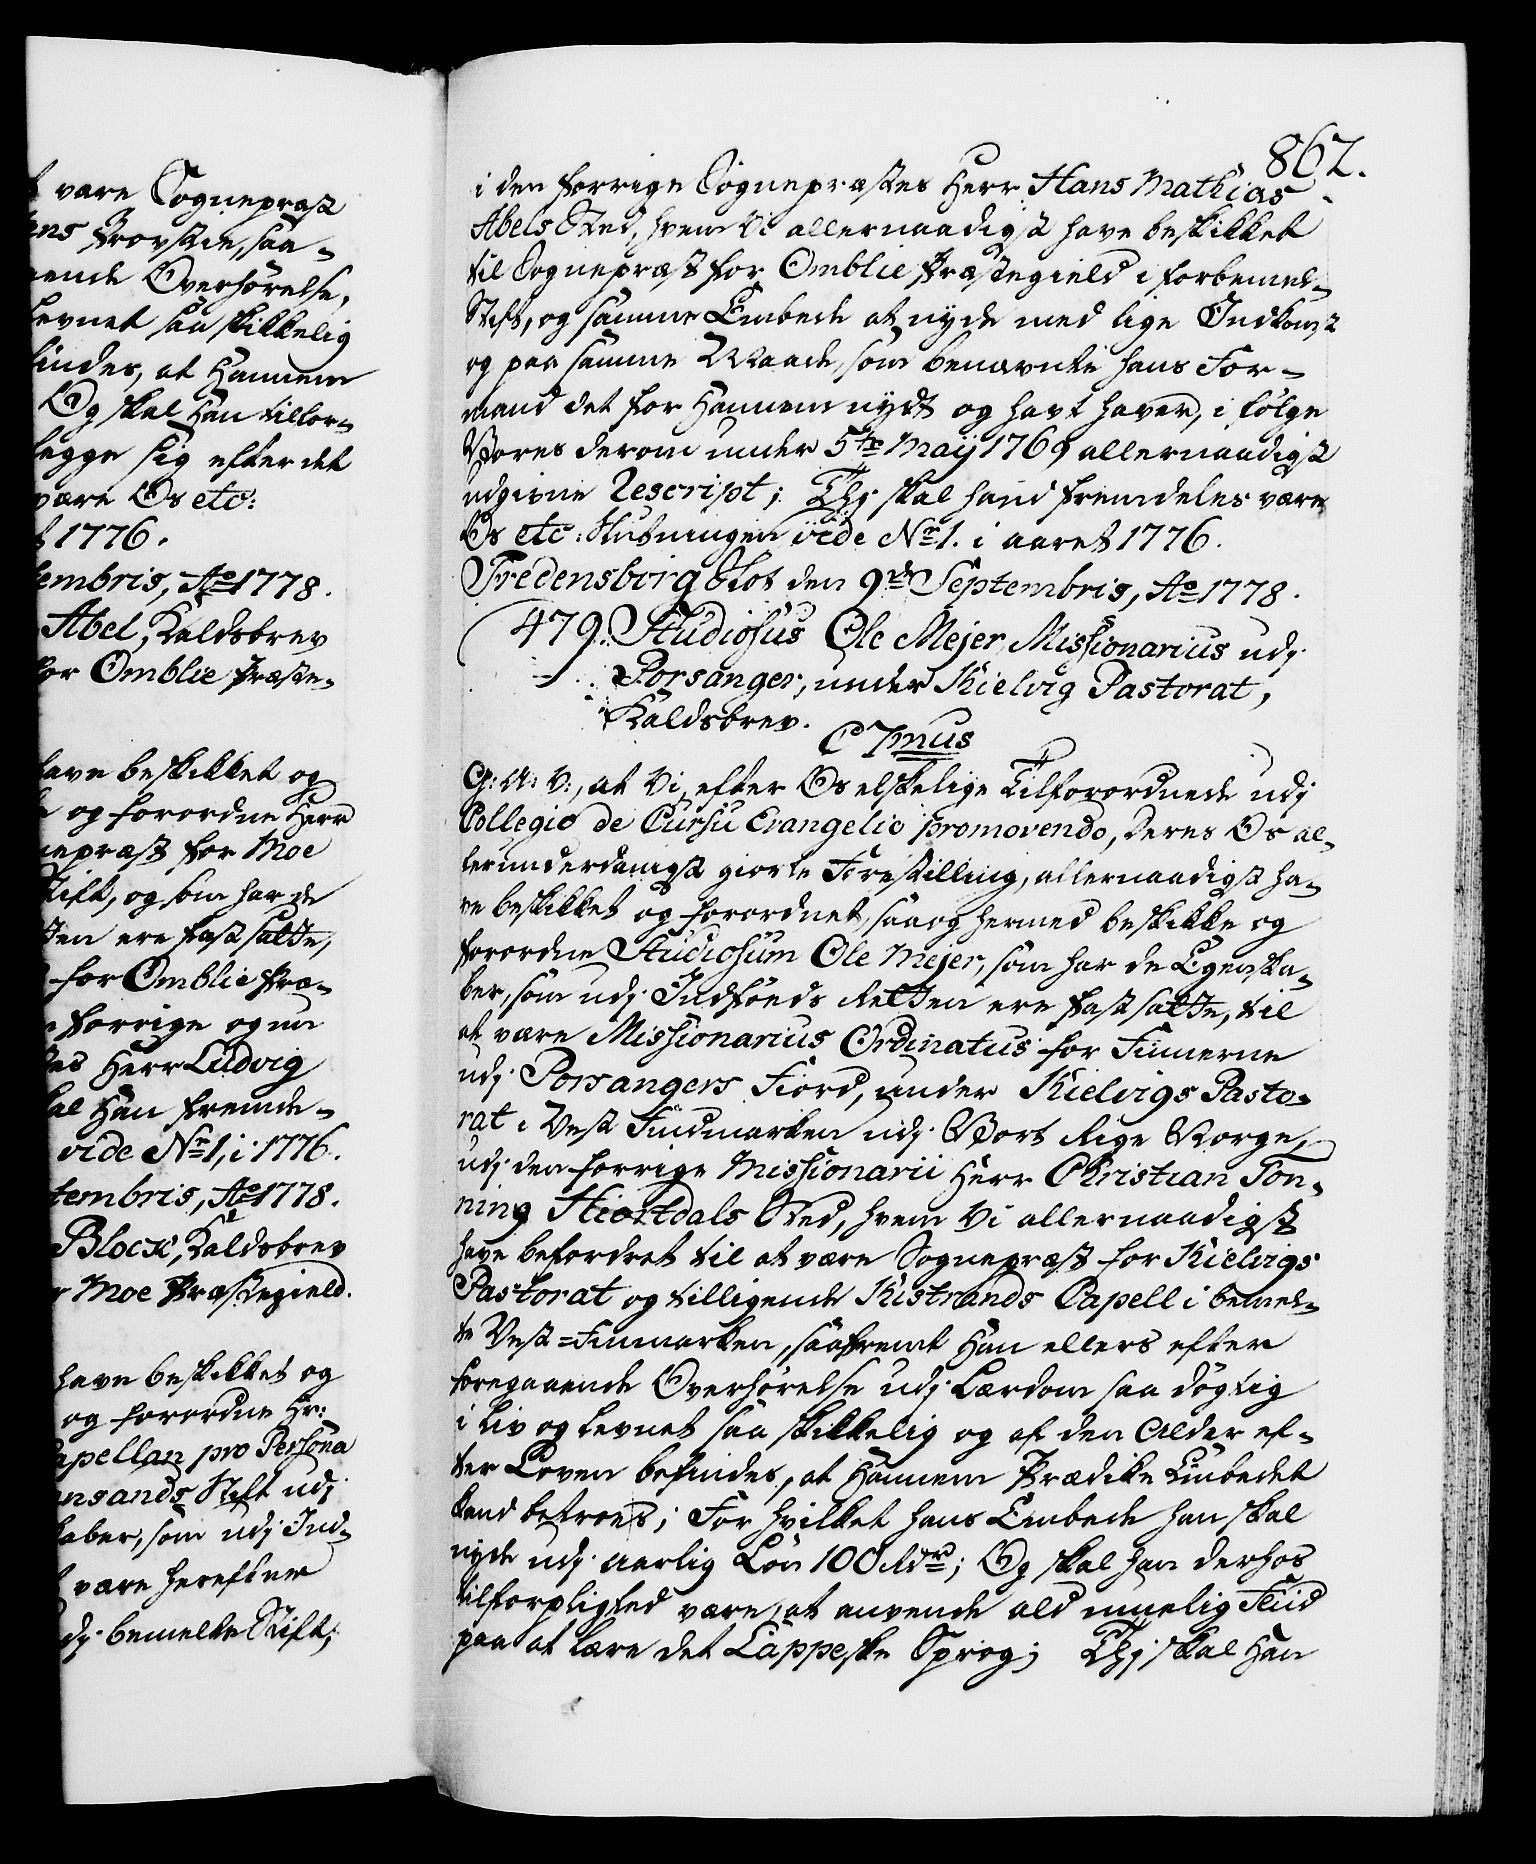 t være Sognepræst
ens Provstie, saa-
aaende Overhørelse,
Levnet saa skikkelig
findes, at Hannem
Og skal Han tillor-
legge sig efter det
være Os etc:
t 1776.
tembris, Ao 1778.
Abel, Kaldsbrev
for Omblie Præste-
have beskikket og
og forordne Herr
nepræst for Moe
Stift, og som har de
ten ere fastsatte,
for Omblie Præ-
forrige og nu
tes Herr Ludvig
kal Han fremde-
vide No 1, i 1776.
tembris, Ao 1778.
Block, Kaldsbrev
r Moe Præstegield.
have beskikket og
og forordne Hr:
apellan pro Persona
ansands Stift udj
kaber, som udj Ind-
t være herefter
dj bemelte Stift;
862.
i den forrige Sognepræstes Herr Hans Mathias
Abels Sted, hvem Vi allernaadigst have beskikket
til Sognepræst for Omblie Præstegield i forbemel-
Stift, og samme Embede at nyde med lige Indkomst
og paa samme Maade, som benævnte hans For-
mand det for Hannem nydt og havt haver, i følge
Vores derom under 5te Maij 1769 allernaadigst
udgivne Rescript; Thj skal hand fremdeles være
Os etc: Slutningen vide No 1. i aaret 1776.
Fredensborg Slot den 9de Septembris, Ao 1778.
479. Studiosus Ole Mejer, Missionarius udj
Porsanger, under Kielvig Pastorat,
Kaldsbrev.
C 7mus
G: A: V:, at Vi, efter Os elskelige Tilforordnede udj
Collegio de Cursu Evangelii promovendo, deres Os al-
lerunderdanigst giorte Forestilling, allernaadigst ha-
ve beskikket og forordnet, saa og hermed beskikke og
forordne Studiosum Ole Mejer, som har de Egenska-
ber, som udj Indføds Retten ere fastsatte, til
at være Missionarius Ordinatus for Finnerne
udj Porsangers Fiord, under Kielvigs Pasto-
rat i Vest Findmarken udj Vort Rige Norge,
udj den forrige Missionarii Herr Christian Ton-
ning Hiortdals Sted, hvem Vi allernaadigst
have befordret til at være Sognepræst for Kielvigs
Pastorat og tilligende Kistrands Capell i bemel-
te Vest-Finmarken, saafremt Han ellers efter
foregaaende Overhørelse udj Lærdom saa dygtig
i Liv og Levnet saa skikkelig og af den Alder ef-
ter Loven befindes, at Hannem Prædike Embedet
kand betroes; For hvilket hans Embede han skal
nyde udj aarlig Løn 100 Rdr; Og skal han derhos
tilforpligted være, at anvende ald muelig Fliid
paa at lære det Lappeske Sprog; Thj skal Han